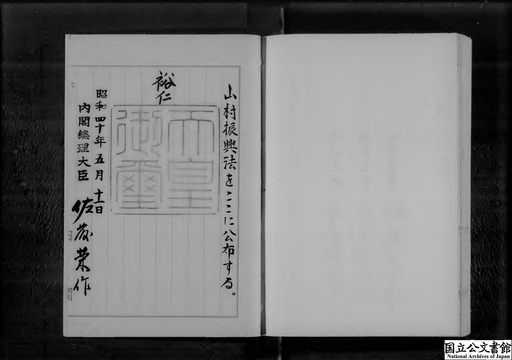 山村振興法をここに公布する。
裕仁
天皇
御璽
昭和四十年五月十一日
内閣総理大臣 佐藤榮作
国立公文書館
National Archives of Japan